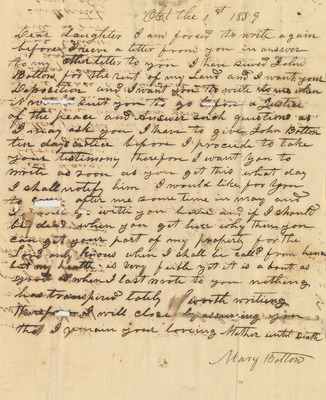 Oct the 1st 1859
Dear Daughter I am forced to write again
before I receve a letter from you in answer
to my other letter to you I have sued John
Botton for the rent of my Land and I want your
Deposition and I want you to write to me when
it suit you to go before a Justice
of the peace and answer such questions as
I may ask you I have to give John Botton
ten days notice before I procide to take
your testimony therefore I want you to
write as soon as you get this what day
I shall notify him I would like for you
to after me some time in may and
I go with you home and if I should
be died when you get here why then you
can get your part of my property for the
Lord only knows when I shall be call'd from hence
but my health is very feible yet it is about as
good as when I last wrote to you nothing
has transpired lately worth writing
therefore I will close by assureing you
that I remain your loveing Mother until Death
Mary Botton